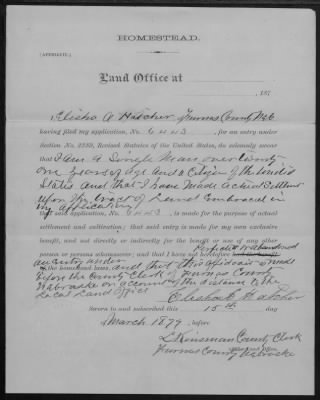 HOMESTEAD.
(AFFIDAVIT.)
Land Office at
, 187
I Elisha A Hatcher of Furnas County Neb
having filed my application, No. 6443, for an entry under
Section No. 2289, Revised Statutes of the United States, do solemnly swear
that I am a Single Man over twenty
one years of age and a Citizen of the United
States and that I have Made actual Settlement
upon the tract of Land Embraced in
my application
that said application, No. 6443, is made for the purpose of actual
settlement and cultivation; that said entry is made for my own exclusive
benefit, and not directly or indirectly for the benefit or use of any other
person or persons whomsoever; and that I have not heretofore Perfected or abandoned
an entry under
the homestead laws, and that this affidavit is made
before the County Clerk of Furnas County
Nebraska on account of the distance to the
Local Land Office
Elisha A Hatcher
Sworn to and subscribed this 15th day
of March 1879, before
Kinsman County Clerk
Furnas County Nebraska